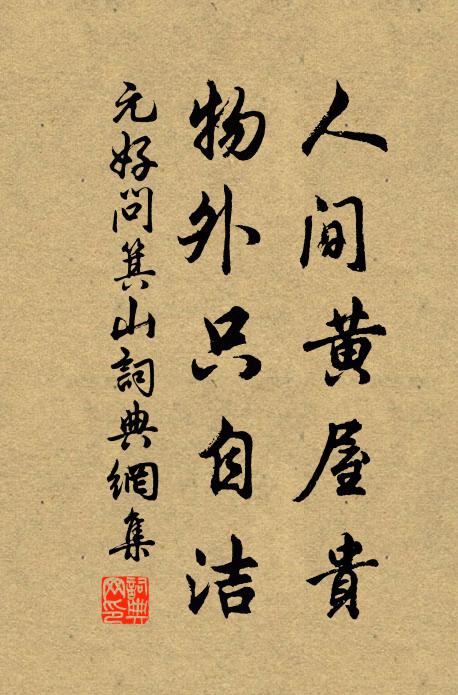 人间黄屋貴
物外只自洁
元好问箕山詞典網集
詞典网印